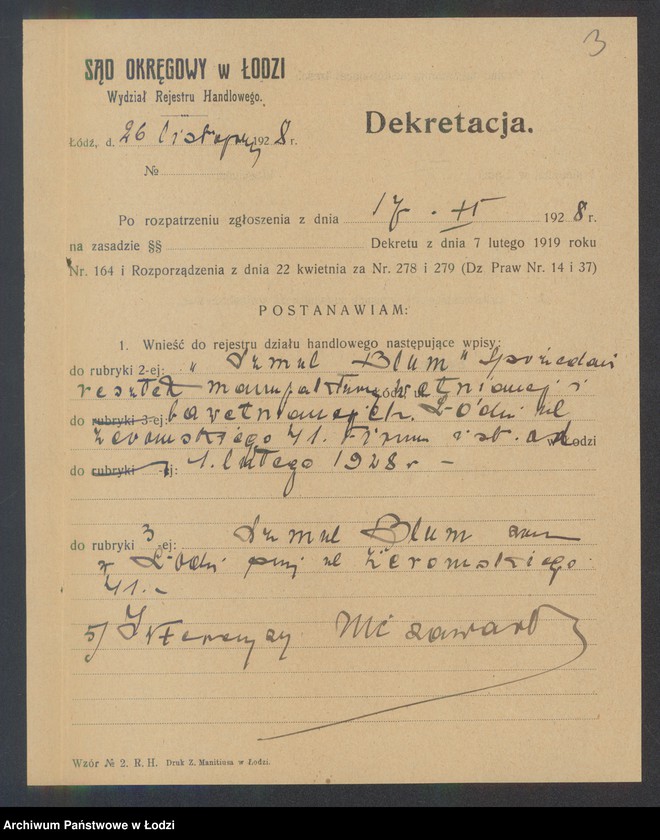 3
SĄD OKRĘGOWY w ŁODZI
Wydział Rejestru Handlowego.
Dekretacja.
Łódź, d. 26 listopada 1928 r.
№
Po rozpatrzeniu zgłoszenia z dnia 17 · XI 1928 r.
na zasadzie §§ Dekretu z dnia 7 lutego 1919 roku
Nr. 164 i Rozporządzenia z dnia 22 kwietnia za Nr. 278 i 279 (Dz Praw Nr. 14 i 37)
POSTANAWIAM:
1. Wnieść do rejestru działu handlowego następujące wpisy:
do rubryki 2-ej: "Szmul Blum" Sprzedaż
resztek manufaktury wełnianej i
do rubryki 3-ej: bawełnianej Łodzi ul
Żeromskiego 41. Firma ist. od w Łodzi
do rubryki -ej: 1. lutego 1928 r –
do rubryki 3-ej: Szmul Blum zam
w Łodzi przy ul Żeromskiego
41. –
5/ Intercyzy nie zawarł
Wzór № 2. R. H. Druk Z. Manitiusa w Łodzi.
Archiwum Państwowe w Łodzi